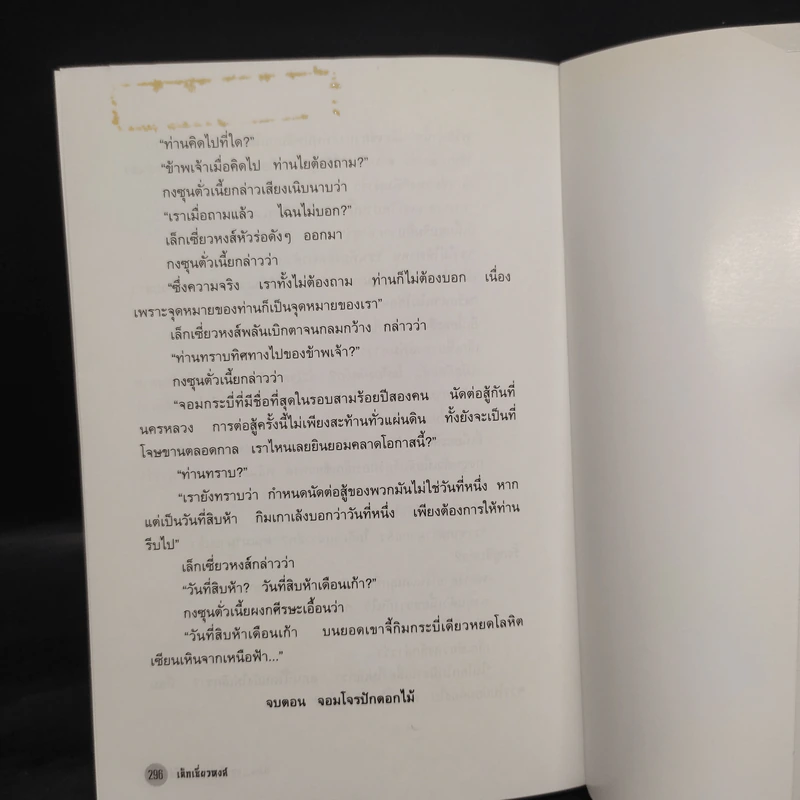 “ท่านคิดไปที่ใด?”
“ข้าพเจ้าเมื่อคิดไป ท่านไยต้องถาม?”
กงซุนตั่วเนี้ยกล่าวเสียงเนิบนาบว่า
“เราเมื่อถามแล้ว ไฉนไม่บอก?”
เล็กเซี่ยวหงส์หัวร่อดังๆ ออกมา
กงซุนตั่วเนี้ยกล่าวว่า
“ซึ่งความจริง เราทั้งไม่ต้องถาม ท่านก็ไม่ต้องบอก เนื่อง
เพราะจุดหมายของท่านก็เป็นจุดหมายของเรา”
เล็กเซี่ยวหงส์พลันเบิกตาจนกลมกว้าง กล่าวว่า
“ท่านทราบทิศทางไปของข้าพเจ้า?”
กงซุนตั่วเนี้ยกล่าวว่า
“จอมกระบี่ที่มีชื่อที่สุดในรอบสามร้อยปีสองคน นัดต่อสู้กันที่
นครหลวง การต่อสู้ครั้งนี้ไม่เพียงสะท้านทั่วแผ่นดิน ทั้งยังจะเป็นที่
โจษขานตลอดกาล เราไหนเลยยินยอมคลาดโอกาสนี้?”
“ท่านทราบ?”
“เรายังทราบว่า กำหนดนัดต่อสู้ของพวกมันไม่ใช่วันที่หนึ่ง หาก
แต่เป็นวันที่สิบห้า กิมเกาเล้งบอกว่าวันที่หนึ่ง เพียงต้องการให้ท่าน
รีบไป”
เล็กเซี่ยวหงส์กล่าวว่า
“วันที่สิบห้า? วันที่สิบห้าเดือนเก้า?”
กงซุนตั่วเนี้ยผงกศีรษะเอื้อนว่า
“วันที่สิบห้าเดือนเก้า บนยอดเขาจี้กิมกระบี่เดียวหยดโลหิต
เซียนเหินจากเหนือฟ้า...”
จบตอน จอมโจรปักดอกไม้
296 เล็กเซี่ยวหงส์